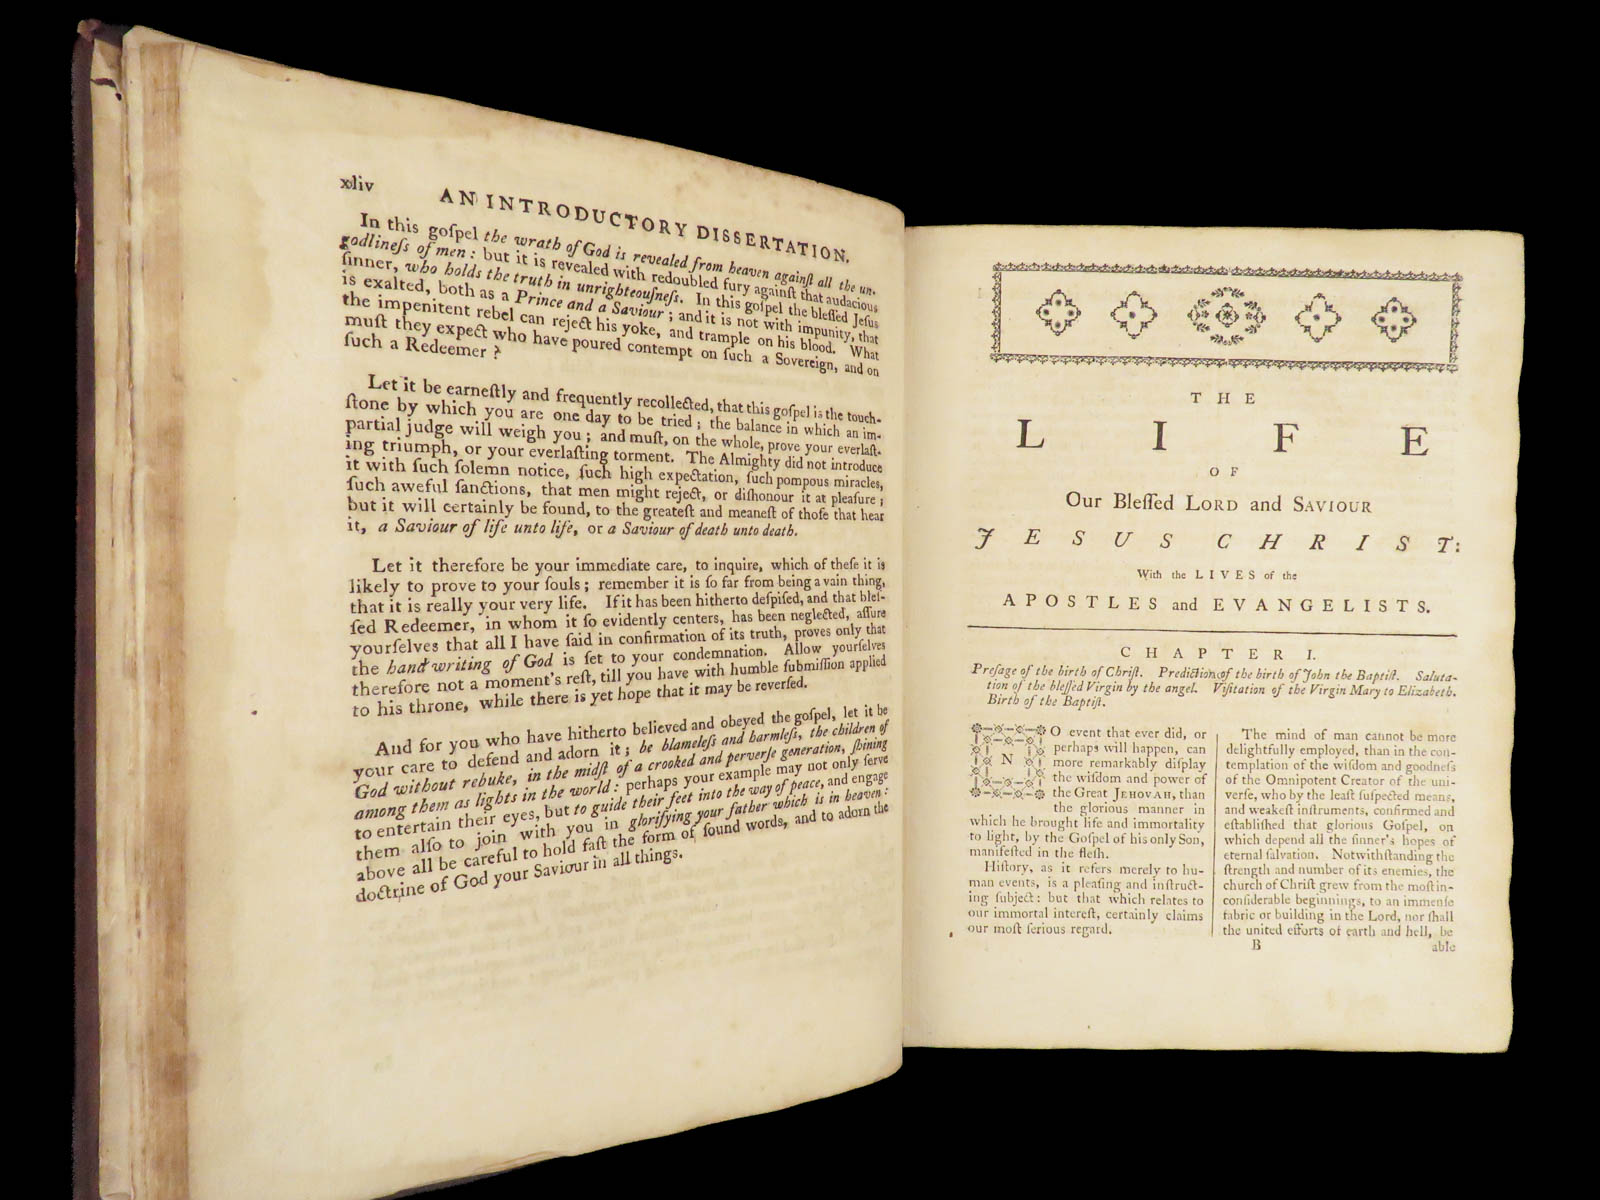 xliv
AN INTRODUCTORY DISSERTATION.
In this goſpel the wrath of God is revealed from heaven againſt all the un-
godlineſs of men: but it is revealed with redoubled fury againſt that audacious
ſinner, who holds the truth in unrighteouſneſs. In this goſpel the bleſſed Jeſus
is exalted, both as a Prince and a Saviour; and it is not with impunity, that
the impenitent rebel can reject his yoke, and trample on his blood. What
muſt they expect who have poured contempt on ſuch a Sovereign, and on
ſuch a Redeemer?
Let it be earneſtly and frequently recollected, that this goſpel is the touch-
ſtone by which you are one day to be tried; the balance in which an im-
partial judge will weigh you; and muſt, on the whole, prove your everlaſt-
ing triumph, or your everlaſting torment. The Almighty did not introduce
it with ſuch ſolemn notice, ſuch high expectation, ſuch pompous miracles,
ſuch aweful ſanctions, that men might reject, or diſhonour it at pleaſure;
but it will certainly be found, to the greateſt and meaneſt of thoſe that hear
it, a Saviour of life unto life, or a Saviour of death unto death.
Let it therefore be your immediate care, to inquire, which of theſe it is
likely to prove to your ſouls; remember it is ſo far from being a vain thing,
that it is really your very life. If it has been hitherto deſpiſed, and that bleſ-
ſed Redeemer, in whom it ſo evidently centers, has been neglected, aſſure
yourſelves that all I have ſaid in confirmation of its truth, proves only that
the hand writing of God is ſet to your condemnation. Allow yourſelves
therefore not a moment's reſt, till you have with humble ſubmiſſion applied
to his throne, while there is yet hope that it may be reverſed.
And for you who have hitherto believed and obeyed the goſpel, let it be
your care to defend and adorn it; be blameleſs and harmleſs, the children of
God without rebuke, in the midſt of a crooked and perverſe generation, ſhining
among them as lights in the world: perhaps your example may not only ſerve
to entertain their eyes, but to guide their feet into the way of peace, and engage
them alſo to join with you in glorifying your father which is in heaven:
above all be careful to hold faſt the form of ſound words, and to adorn the
doctrine of God your Saviour in all things.
THE
LIFE
OF
Our Bleſſed LORD and SAVIOUR
JESUS CHRIST:
With the LIVES of the
APOSTLES and EVANGELISTS.
CHAPTER I.
Preſage of the birth of Chriſt. Prediction of the birth of John the Baptiſt. Saluta-
tion of the bleſſed Virgin by the angel. Viſitation of the Virgin Mary to Elizabeth.
Birth of the Baptiſt.
NO event that ever did, or
perhaps will happen, can
more remarkably diſplay
the wiſdom and power of
the Great JEHOVAH, than
the glorious manner in
which he brought life and immortality
to light, by the Goſpel of his only Son,
manifeſted in the fleſh.
Hiſtory, as it refers merely to hu-
man events, is a pleaſing and inſtruct-
ing ſubject: but that which relates to
our immortal intereſt, certainly claims
our moſt ſerious regard.
The mind of man cannot be more
delightfully employed, than in the con-
templation of the wiſdom and goodneſs
of the Omnipotent Creator of the uni-
verſe, who by the leaſt ſuſpected means,
and weakeſt inſtruments, confirmed and
eſtabliſhed that glorious Goſpel, on
which depend all the ſinner's hopes of
eternal ſalvation. Notwithſtanding the
ſtrength and number of its enemies, the
church of Chriſt grew from the moſt in-
conſiderable beginnings, to an immenſe
fabric or building in the Lord, nor ſhall
the united efforts of earth and hell, be
B
able